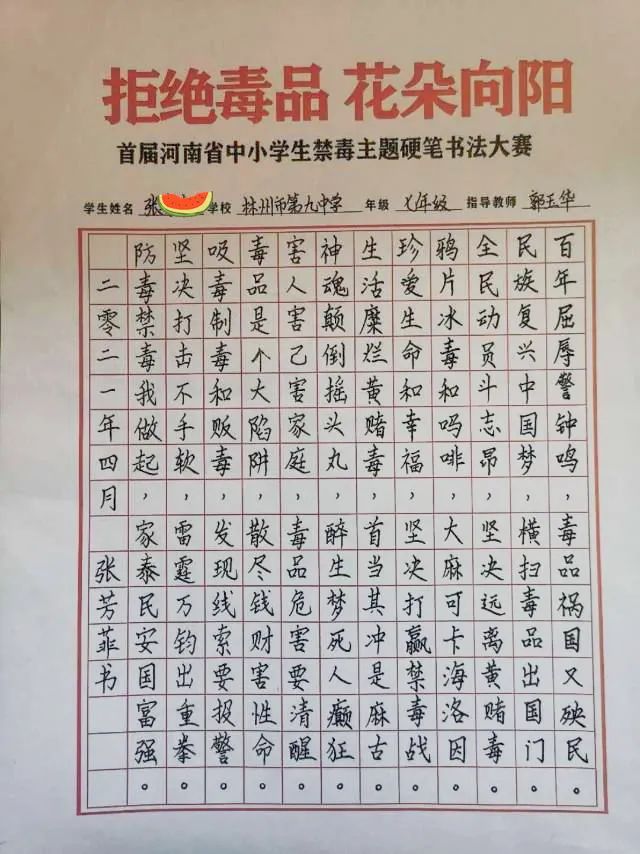 拒绝毒品 花朵向阳
首届河南省中小学生禁毒主题硬笔书法大赛
学生姓名 张 学校 林州市第九中学 年级 七年级 指导教师 郭玉华
百年屈辱警钟鸣，毒品祸国又殃民。
民族复兴中国梦，横扫毒品出国门。
全民动员斗志昂，坚决远离黄赌毒。
鸦片冰毒和吗啡，大麻可卡海洛因。
珍爱生命和幸福，坚决打赢禁毒战。
生活糜烂黄赌毒，首当其冲是麻古。
神魂颠倒摇头丸，醉生梦死人癫狂。
害人害己害家庭，毒品危害要清醒。
毒品是个大陷阱，散尽钱财害性命。
吸毒制毒和贩毒，发现线索要报警。
坚决打击不手软，雷霆万钧出重拳。
防毒禁毒我做起，家泰民安国富强。
二零二一年四月 张芳菲书